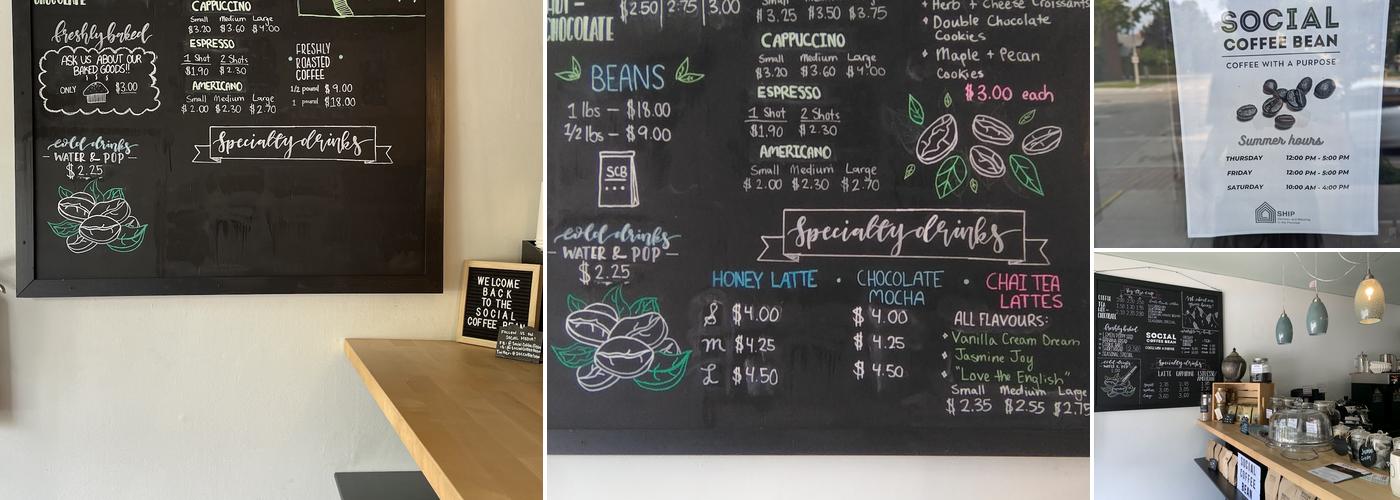 CHOCOLATE
CAPPUCCINO
Small Medium Large
$3.20 $3.60 $4.00
freshly baked
ASK US ABOUT OUR
BAKED GOODS!!
ONLY $3.00
ESPRESSO
1 Shot 2 Shots
$1.90 $2.30
AMERICANO
Small Medium Large
$2.00 $2.30 $2.70
FRESHLY
ROASTED
COFFEE
1/2 pound $9.00
1 pound $18.00
cold drinks
WATER & POP
$2.25
Specialty drinks
WELCOME
BACK
TO THE
SOCIAL
COFFEE BEAN
CHOCOLATE
$2.50 2.75 3.00
BEANS
1 lbs - $18.00
1/2 lbs - $9.00
SCB
cold drinks
WATER & POP
$2.25
Small Medium Large
$3.25 $3.50 $3.75
CAPPUCCINO
Small Medium Large
$3.20 $3.60 $4.00
ESPRESSO
1 Shot 2 Shots
$1.90 $2.30
AMERICANO
Small Medium Large
$2.00 $2.30 $2.70
Herb + Cheese Croissants
Double Chocolate
Cookies
Maple + Pecan
Cookies
$3.00 each
Specialty drinks
HONEY LATTE • CHOCOLATE MOCHA • CHAI TEA LATTES
S $4.00 $4.00
M $4.25 $4.25
L $4.50 $4.50
ALL FLAVOURS:
Vanilla Cream Dream
Jasmine Joy
"Love the English"
Small Medium Large
$2.35 $2.55 $2.75
SOCIAL
COFFEE BEAN
COFFEE WITH A PURPOSE
Summer hours
THURSDAY 12:00 PM - 5:00 PM
FRIDAY 12:00 PM - 5:00 PM
SATURDAY 10:00 AM - 4:00 PM
SHIP
By the cup
freshly baked
SOCIAL
COFFEE BEAN
Specialty drinks
LATTE
SOCIAL
COFFEE
BEAN